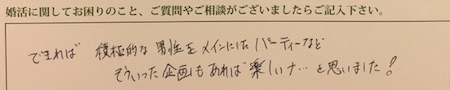 婚活に関してお困りのこと、ご質問やご相談がございましたらご記入下さい。
できれば 積極的な男性をメインにしたパーティーなど
そういった企画もあれば楽しいナ…と思いました！